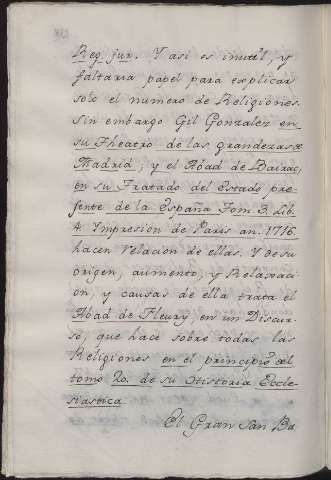 Reg. jur. Y asi es inutil, y
faltaria papel para explicar
solo el numero de Religiones.
Sin embargo Gil Gonzalez en
su Theatro de las grandezas de
Madrid, y el Abad de Bairac,
en su Tratado del Estado pre-
sente de la España Tom. 3. lib.
4. Impresion de Paris an. 1716
hacen relacion de ellas. Y de su
origen, aumento, y Relaxaci-
on, y causas de ella trata el
Abad de Fleury, en un Discur-
so, que hace sobre todas las
Religiones en el principio del
tomo 20. de su Historia Eccle-
siastica
El Gran San Ba